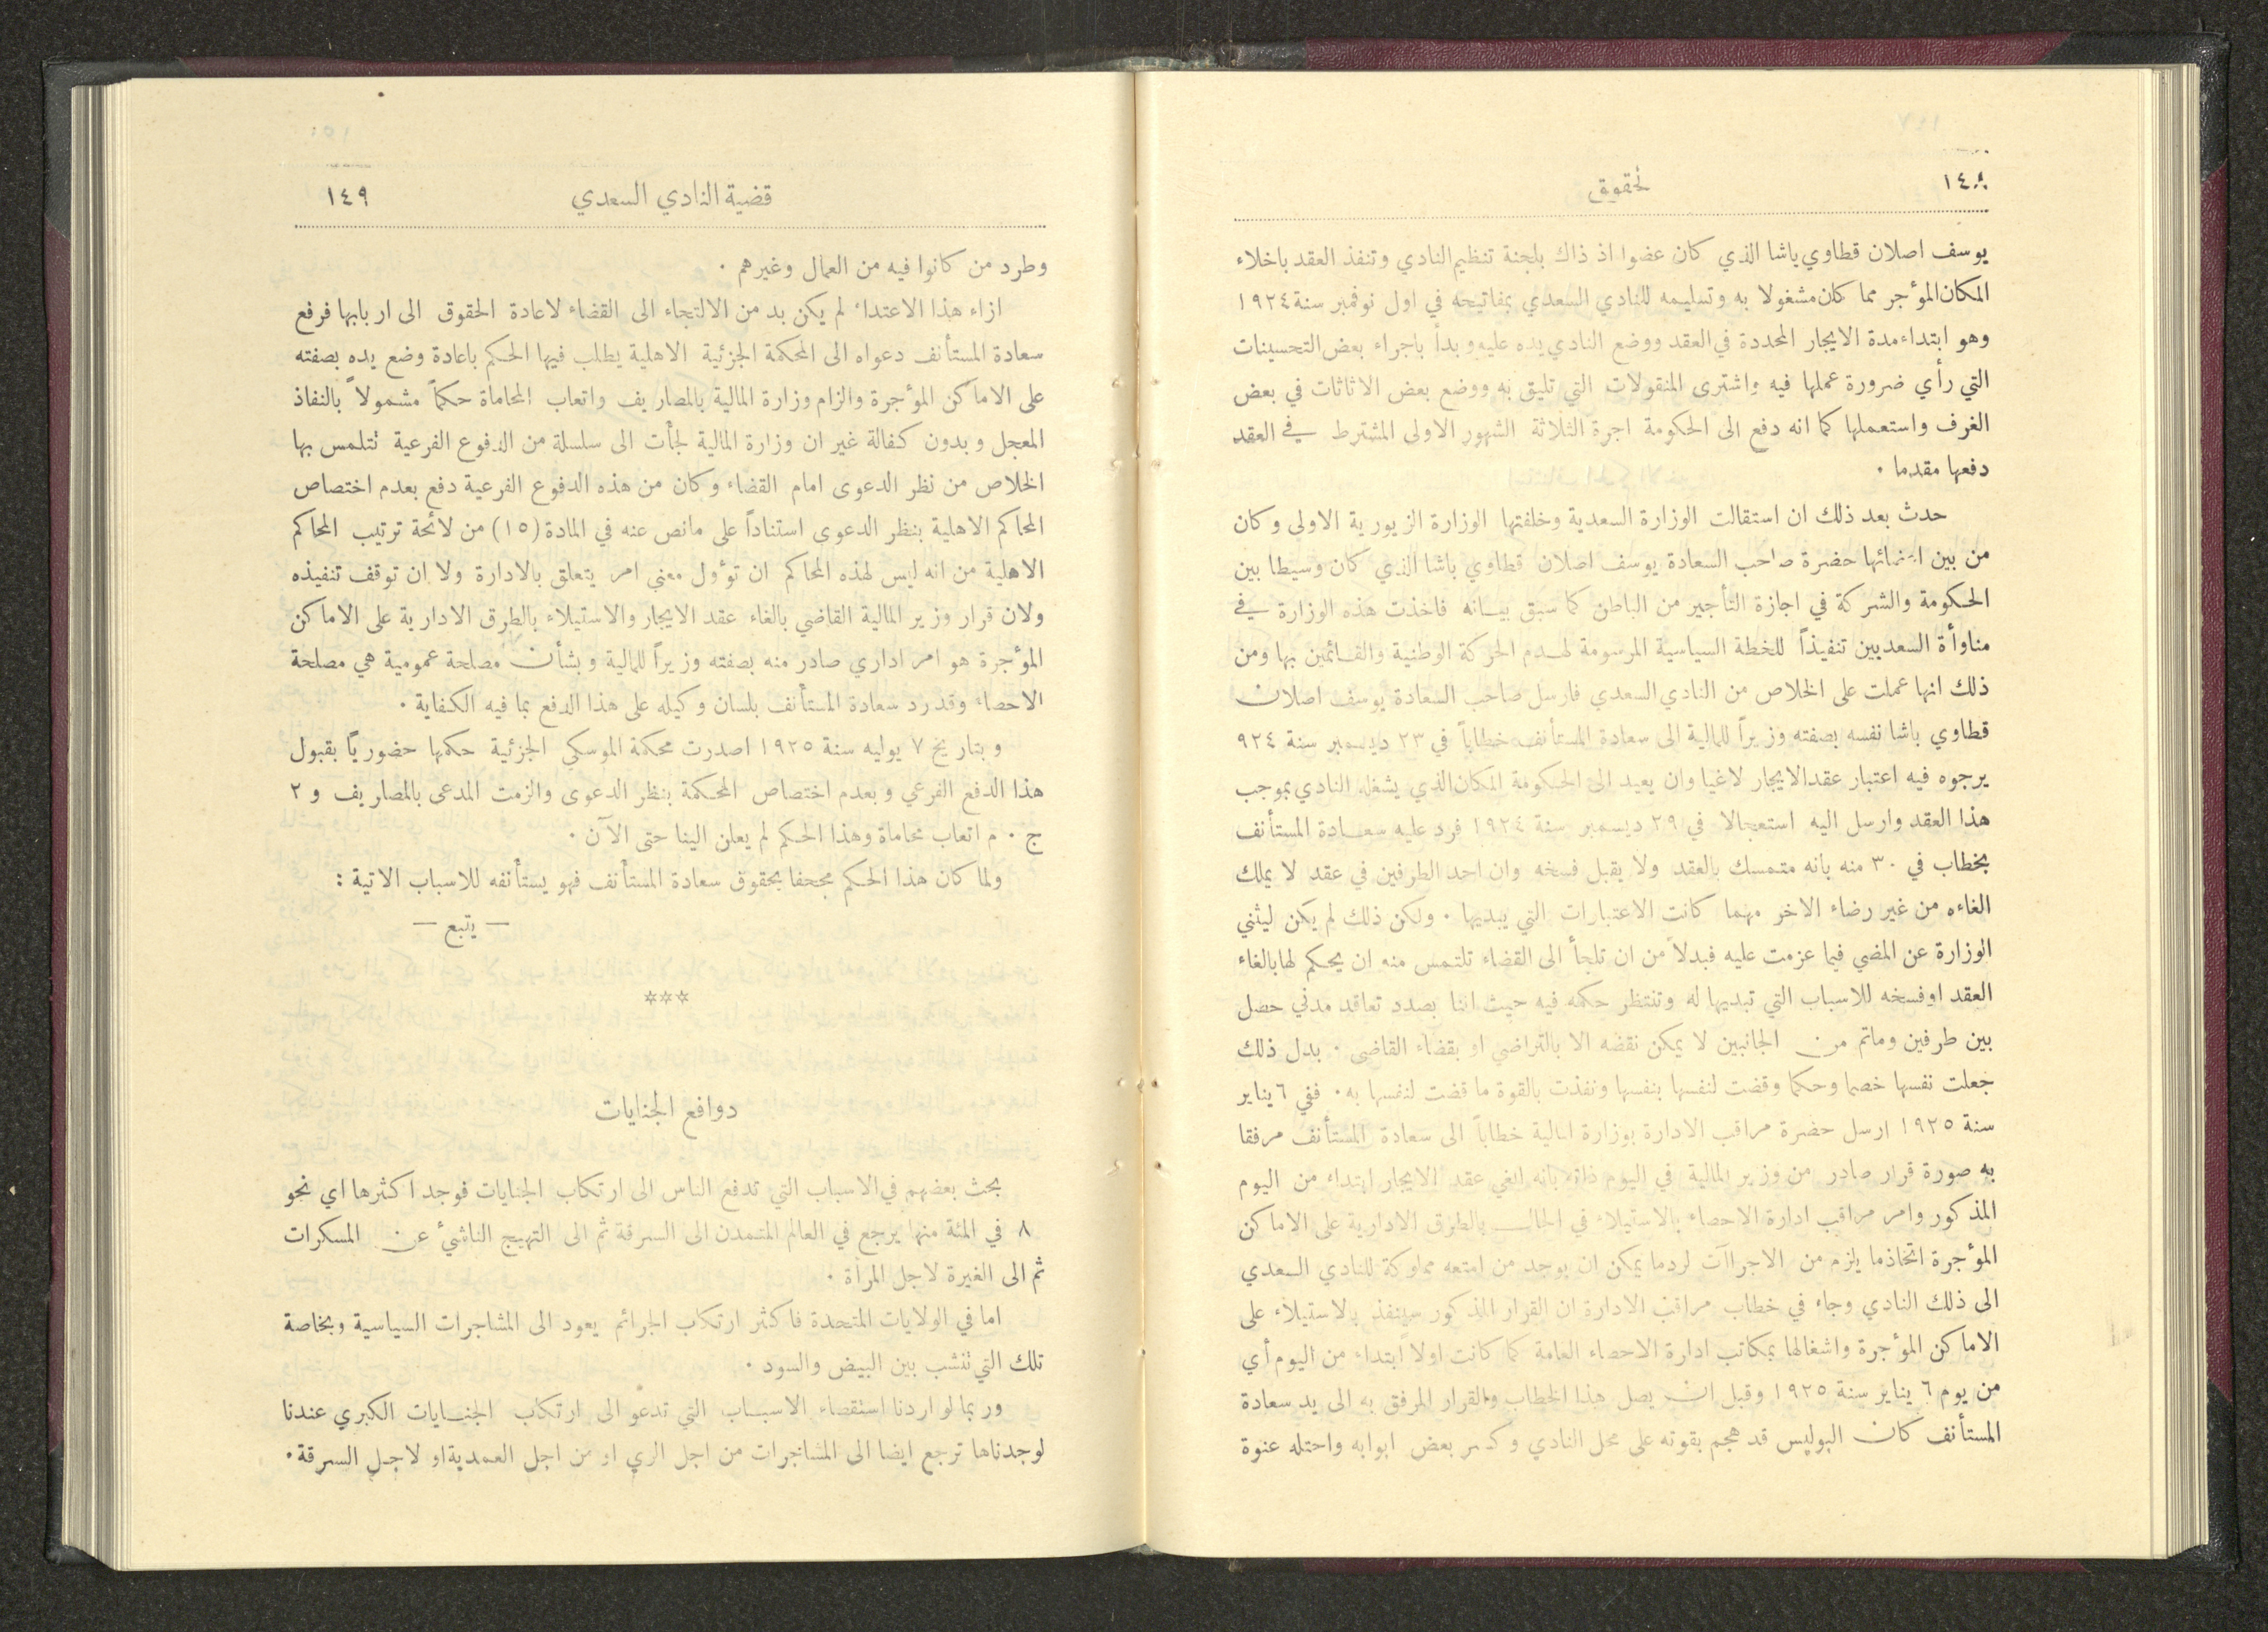 ١٤٨
لحقوق
يوسف اصلان قطاوي باشا الذي كان عضوا اذ ذاك بلجنة تنظيم النادي وتنفذ العقد باخلاء
المكان المؤجر مما كان مشغولا به وتسليمه للنادي السعدي بمفاتيحه في اول نوفمبر سنة ١٩٢٤
وهو ابتداء مدة الايجار المحددة في العقد ووضع النادي يده عليه وبدأ باجراء بعض التحسينات
التي رأي ضرورة عملها فيه واشترى المنقولات التي تليق به ووضع بعض الاثاثات في بعض
الغرف واستعملها كما انه دفع الى الحكومة اجرة الثلاثة الشهور الاولى المشترط في العقد
دفعها مقدما ٠
حدث بعد ذلك ان استقالت الوزارة السعدية وخلفتها الوزارة الزيورية الاولى وكان
من بين اعضائها حضرة صاحب السعادة يوسف اصلان قطاوي باشا الذي كان وسيطا بين
الحكومة والشركة في اجازة التأجير من الباطن كما سبق بيانه فاخذت هذه الوزارة في
مناوأة السعديين تنفيذاً للخطة السياسية المرسومة لهدم الحركة الوطنية والقائمين بها ومن
ذلك انها عملت على الخلاص من النادي السعدي فارسل صاحب السعادة يوسف اصلان
قطاوي باشا نفسه بصفته وزيراً للمالية الى سعادة المستأنف خطاباً في ٢٣ ديسمبر سنة ٩٢٤
يرجوه فيه اعتبار عقد الايجار لاغيا وان يعيد الى الحكومة المكان الذي يشغله النادي بموجب
هذا العقد وارسل اليه استعجالا في ٢٩ ديسمبر سنة ١٩٢٤ فرد عليه سعادة المستأنف
بخطاب في ٣٠ منه بانه متمسك بالعقد ولا يقبل فسخه وان احد الطرفين في عقد لا يملك
الغاءه من غير رضاء الاخر مهما كانت الاعتبارات التي يبديها ٠ ولكن ذلك لم يكن ليثني
الوزارة عن المضي فيما عزمت عليه فبدلاً من ان تلجأ الى القضاء تلتمس منه ان يحكم لها بالغاء
العقد او فسخه للاسباب التي تبديها له وتنتظر حكمه فيه حيث اننا بصدد تعاقد مدني حصل
بين طرفين وماتم من الجانبين لا يمكن نقضه الا بالتراضي او بقضاء القاضي ٠ بدل ذلك
جعلت نفسها خصما وحكما وقضت لنفسها بنفسها ونفذت بالقوة ما قضت لنفسها به ٠ ففي ٦ يناير
سنة ١٩٢٥ ارسل حضرة مراقب الادارة بوزارة المالية خطاباً الى سعادة المستأنف مرفقا
به صورة قرار صادر من وزير المالية في اليوم ذاته بانه الغي عقد الايجار ابتداء من اليوم
المذكور وامر مراقب ادارة الاحصاء بالاستيلاء في الحال بالطرق الادارية على الاماكن
المؤجرة اتخاذ ما يلزم من الاجراآت لرد ما يمكن ان يوجد من امتعه مملوكة للنادي السعدي
الى ذلك النادي وجاء في خطاب مراقب الادارة ان القرار المذكور سينفذ بالاستيلاء على
الاماكن المؤجرة واشغالها بمكاتب ادارة الاحصاء العامة كما كانت اولاً ابتداء من اليوم أي
من يوم ٦ يناير سنة ١٩٢٥ وقبل ان يصل هذا الخطاب والقرار المرفق به الى يد سعادة
المستأنف كان البوليس قد هجم بقوته على محل النادي وكسر بعض ابوابه واحتله عنوة
قضية النادي السعدي
١٤٩
وطرد من كانوا فيه من العمال وغيرهم ٠
ازاء هذا الاعتداء لم يكن بد من الالتجاء الى القضاء لاعادة الحقوق الى اربابها فرفع
سعادة المستأنف دعواه الى المحكمة الجزئية الاهلية يطلب فيها الحكم باعادة وضع يده بصفته
على الاماكن المؤجرة والزام وزارة المالية بالمصاريف واتعاب المحاماة حكماً مشمولاً بالنفاذ
المعجل وبدون كفالة غير ان وزارة المالية لجأت الى سلسلة من الدفوع الفرعية تتلمس بها
الخلاص من نظر الدعوى امام القضاء وكان من هذه الدفوع الفرعية دفع بعدم اختصاص
المحاكم الاهلية بنظر الدعوى استناداً على مانص عنه في المادة (١٥) من لائحة ترتيب المحاكم
الاهلية من انه ليس لهذه المحاكم ان تؤول معنى امر يتعلق بالادارة ولا ان توقف تنفيذه
ولان قرار وزير المالية القاضي بالغاء عقد الايجار والاستيلاء بالطرق الادارية على الاماكن
المؤجرة هو امر اداري صادر منه بصفته وزيراً للمالية وبشأن مصلحة عمومية هي مصلحة
الاحصاء وقد رد سعادة المستأنف بلسان وكيله على هذا الدفع بما فيه الكفاية ٠
وبتاريخ ٧ يوليه سنة ١٩٢٥ اصدرت محكمة الموسكي الجزئية حكمها حضورياً بقبول
هذا الدفع الفرعي وبعدم اختصاص المحكمة بنظر الدعوى والزمت المدعى بالمصاريف و ٢
ج ٠ م اتعاب محاماة وهذا الحكم لم يعلن الينا حتى الآن ٠
ولما كان هذا الحكم مجحفا بحقوق سعادة المستأنف فهو يستأنفه للاسباب الاتية :
— يتبع —
***
دوافع الجنايات
بحث بعضهم في الاسباب التي تدفع الناس الى ارتكاب الجنايات فوجد اكثرها اي نحو
٨ في المئة منها يرجع في العالم المتمدن الى السرقة ثم الى التهيج الناشئ عن المسكرات
ثم الى الغيرة لاجل المرأة ٠
اما في الولايات المتحدة فاكثر ارتكاب الجرائم يعود الى المشاجرات السياسية وبخاصة
تلك التي تنشب بين البيض والسود ٠
وربما لو اردنا استقصاء الاسباب التي تدعو الى ارتكاب الجنايات الكبري عندنا
لوجدناها ترجع ايضا الى المشاجرات من اجل الري او من اجل العمدية او لاجل السرقة ٠